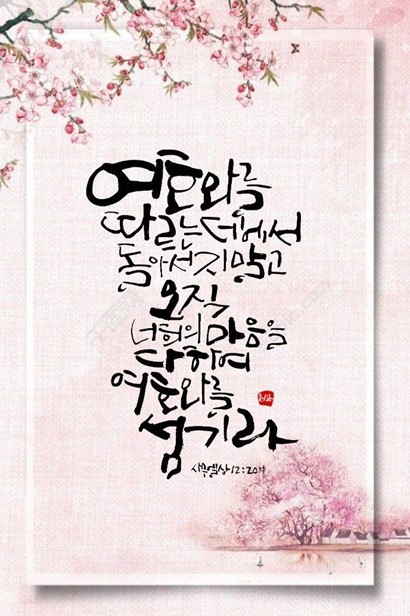 여호와를
따르는데에서
돌아서지말고
오직
너희의마음을
다하여
여호와를
섬기라
사무엘상12:20中